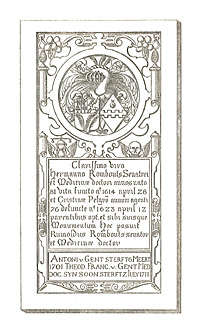 Clarissimo viro
Hermanno Rombouts Senatori
et Medicinæ doctori annos nato
vita functo aº 1614 april 28
et Cristinæ Pelgrú annum agenti
76 defunctæ aº 1623 april 12
parentibus opt. et sibi suisque
Monumentum Hoc posuit
Rumoldus Rombouts senator
et Medicinæ doctor
ANTONI v. GENT STERFT 6 MEERT
1701 THEOD. FRANC. v. GENT MED
DOC. SYN SOON STERFT Z JULY